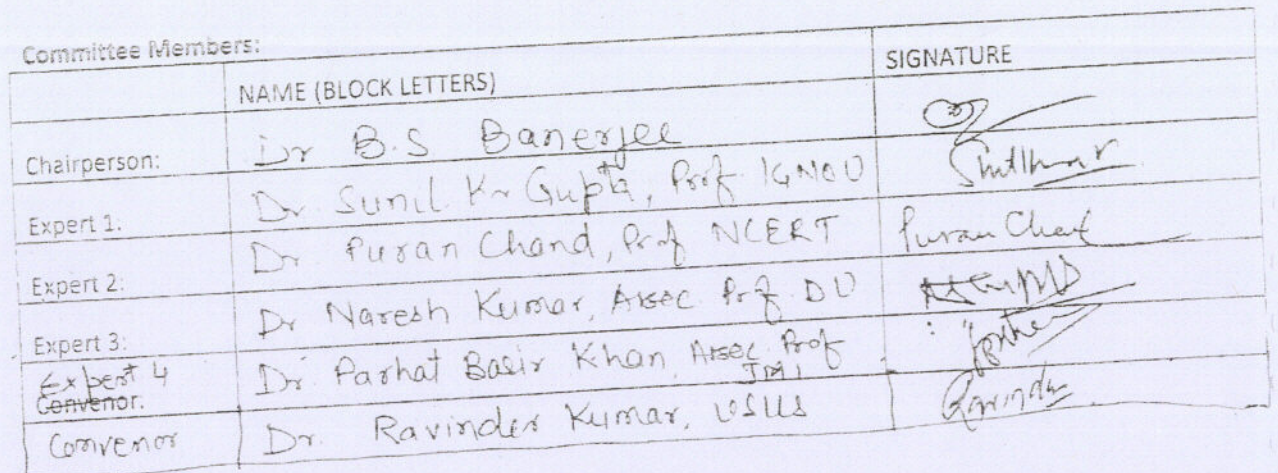 Committee Members:
NAME (BLOCK LETTERS) SIGNATURE
Chairperson: Dr B.S Banerjee
Expert 1: Dr. Sunil Kr Gupta, Prof. IGNOU
Expert 2: Dr Puran Chand, Prof NCERT Puran Chand
Expert 3: Dr Naresh Kumar, Assoc Prof. DU
Expert 4 Dr. Farhat Basir Khan, Assoc Prof
Convenor: JMI
Convenor Dr. Ravinder Kumar, USLLS Ravinder